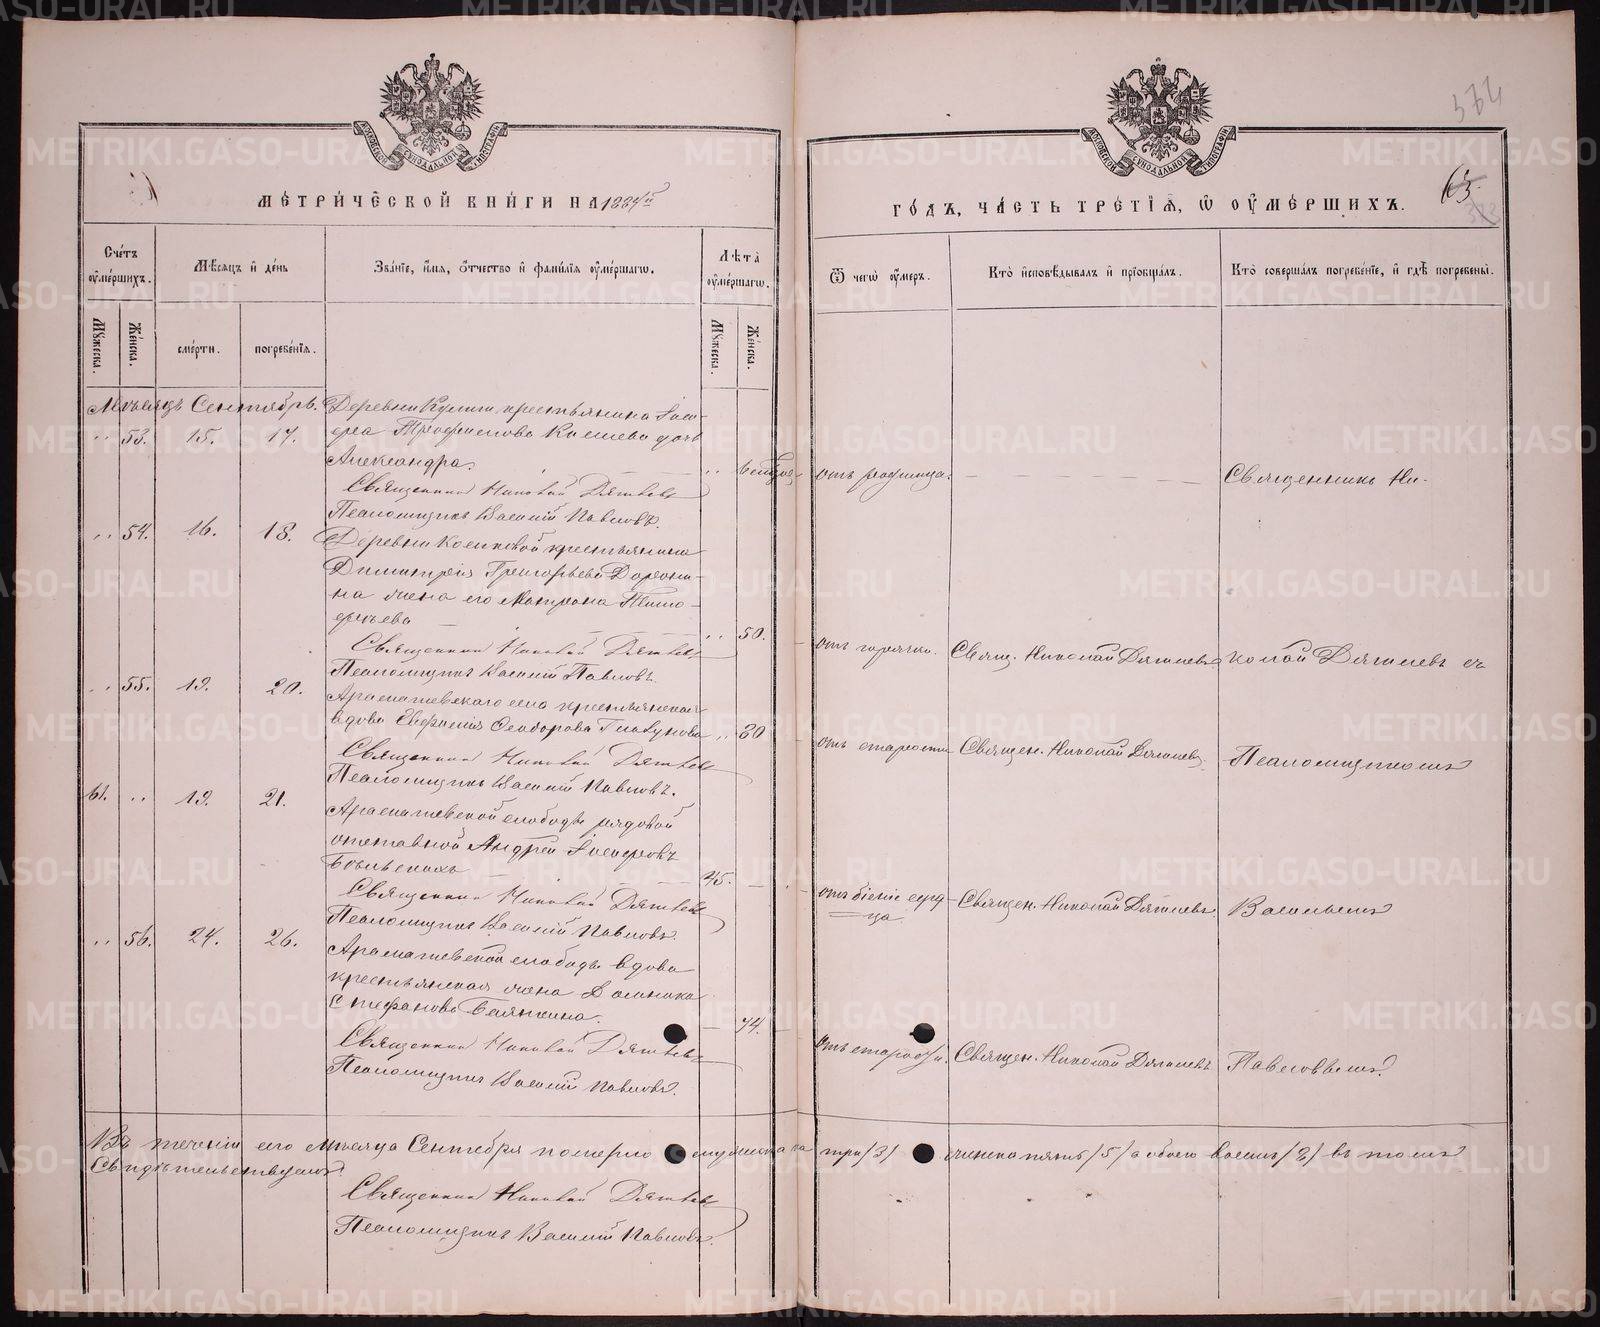 МЕТРИЧЕСКОЙ КНИГИ НА 1884й
ГОДЪ, ЧАСТЬ ТРЕТІЯ, Ѿ ОУМЕРШИХЪ.
Счетъ оумершихъ.
Мѣсяцъ и день
Званіе, имя, отчество и фамилія оумершагѡ.
Лѣта оумершагѡ.
Ѿ чегѡ оумеръ.
Кто исповѣдывалъ и пріобщалъ.
Кто совершалъ погребеніе, и гдѣ погребены.
Мужеска. Женска. смерти. погребенія. Мужеска. Женска.
Мѣсяцъ Сентябрь. Деревни крестьянина
„ 53. 15. 17. Трофимова дочь
Александра. отъ родимца. Священникъ Ни-
Священникъ Николай Дягилевъ
Псаломщикъ Василій Павловъ.
„ 54. 16. 18. Деревни крестьянина
Димитрія Григорьева
на жена его Матрона Тимо-
феева „ 50. отъ горячки. Свящ. Николай Дягилевъ колай Дягилевъ съ
Священникъ Николай Дягилевъ
Псаломщикъ Василій Павловъ.
„ 55. 19. 20. Арамашевскаго села крестьянская
вдова Евфимія Ѳеодорова „ 80 отъ старости Священ. Николай Дягилевъ Псаломщикомъ
Священникъ Николай Дягилевъ
Псаломщикъ Василій Павловъ.
61. „ 19. 21. Арамашевской слободы рядовой
отставной Андрей
45. отъ біенія серд-
ца Священ. Николай Дягилевъ Васильемъ
Священникъ Николай Дягилевъ
Псаломщикъ Василій Павловъ.
„ 56. 24. 26. Арамашевской слободы вдова
крестьянская жена Домника
Стефанова 74. отъ старости. Священ. Николай Дягилевъ Павловымъ.
Священникъ Николай Дягилевъ
Псаломщикъ Василій Павловъ.
Въ теченіи сего мѣсяца Сентября померло мужеска три /3/ женска пять /5/ а обоего восемь /8/ въ томъ
Свидѣтельствуемъ.
Священникъ Николай Дягилевъ
Псаломщикъ Василій Павловъ.
METRIKI.GASO-URAL.RU